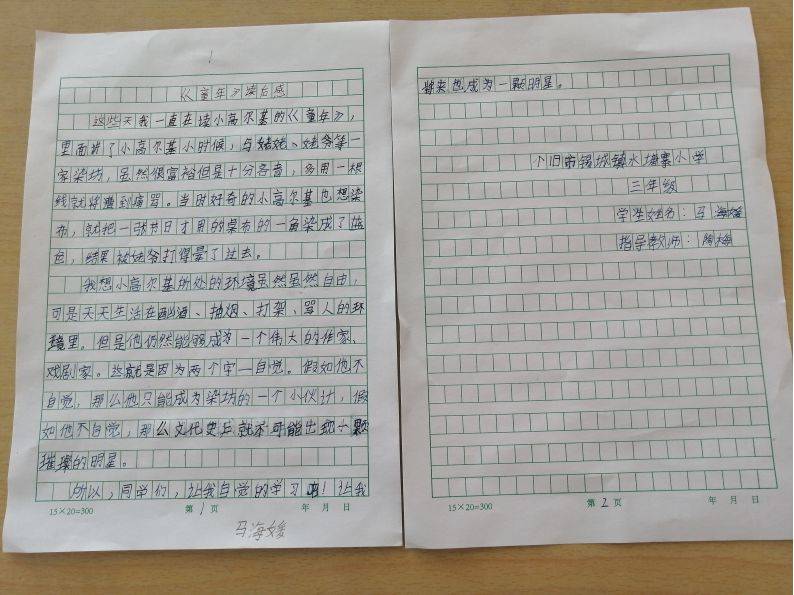 1
《童年》读后感
这些天我一直在读小高尔基的《童年》，
里面讲了小高尔基小时候，与姥姥、姥爷等一
家染坊，虽然很富裕但是十分吝啬，多用一根
线就将遭到痛骂。当时好奇的小高尔基也想染
布，就把一张节日才用的桌布的一角染成了蓝
色，结果被姥爷打得晕了过去。
我想小高尔基所处的环境虽然虽然自由，
可是天天生活在酗酒、抽烟、打架、骂人的环
境里。但是他仍然能够成为一个伟大的作家、
戏剧家。这就是因为两个字—自觉。假如他不
自觉，那么他只能成为染坊的一个小伙计，假
如他不自觉，那么文化史上就不可能出现一颗
璀璨的明星。
所以，同学们，让我自觉的学习吧！让我
15×20=300 第1页 年 月 日
马海媛
将来也成为一颗明星。
个旧市锡城镇水塘寨小学
三年级
学生姓名：马海媛
指导教师：陶梅
15×20=300 第2页 年 月 日